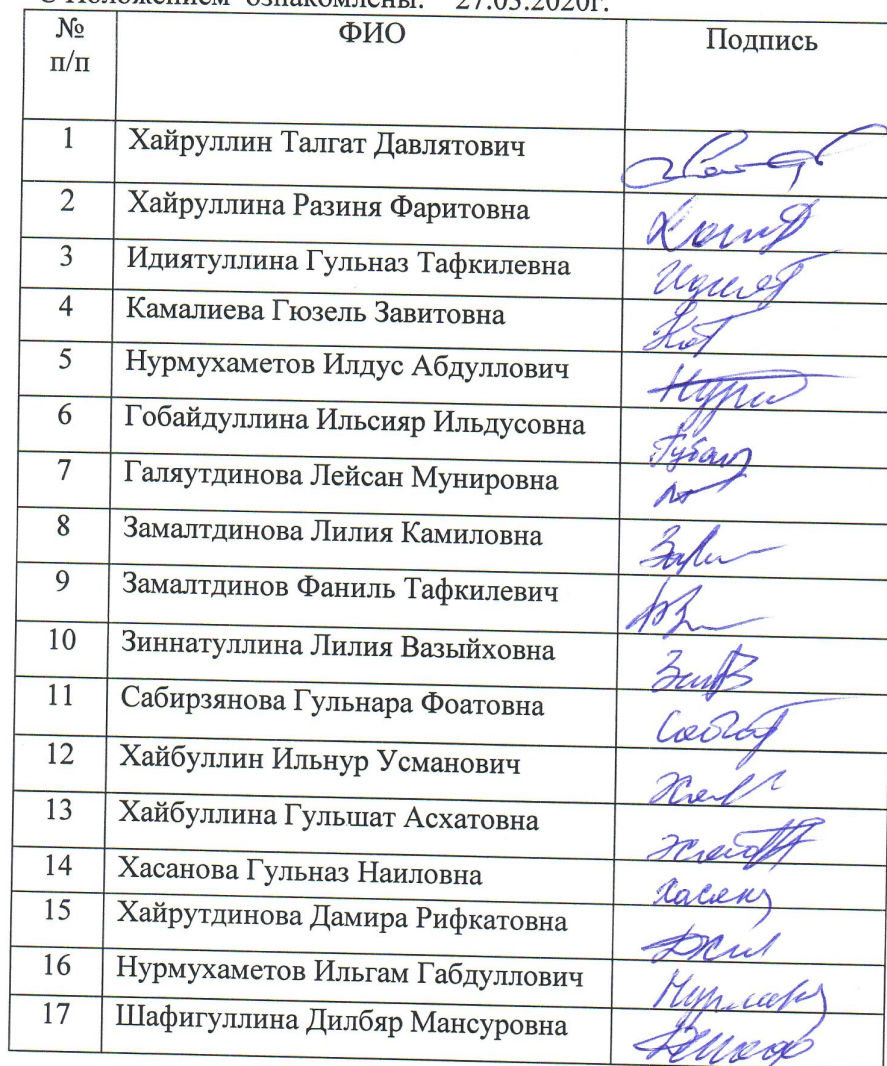 С Положением ознакомлены. 27.03.2020г.
№ п/п ФИО Подпись
1 Хайруллин Талгат Давлятович
2 Хайруллина Разиня Фаритовна
3 Идиятуллина Гульназ Тафкилевна
4 Камалиева Гюзель Завитовна
5 Нурмухаметов Илдус Абдуллович
6 Гобайдуллина Ильсияр Ильдусовна
7 Галяутдинова Лейсан Мунировна
8 Замалтдинова Лилия Камиловна
9 Замалтдинов Фаниль Тафкилевич
10 Зиннатуллина Лилия Вазыйховна
11 Сабирзянова Гульнара Фоатовна
12 Хайбуллин Ильнур Усманович
13 Хайбуллина Гульшат Асхатовна
14 Хасанова Гульназ Наиловна
15 Хайрутдинова Дамира Рифкатовна
16 Нурмухаметов Ильгам Габдуллович
17 Шафигуллина Дилбяр Мансуровна